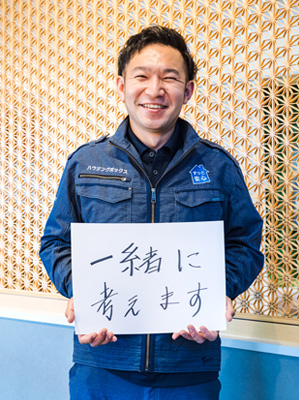 ハウジングボックス
ずっと
安心
一緒に
考えます